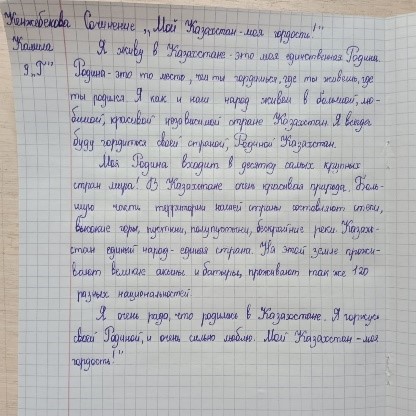 Кенжебекова Сочинение „Мой Казахстан-моя гордость!"
Камила Я живу в Казахстане - это моя единственная Родина.
9 „Г" Родина - это то место, чем ты гордишься, где ты живешь, где
ты родился. Я как и наш народ живем в большой, лю-
бимой, красивой независимой стране Казахстан. Я всегда
буду гордиться своей страной, Родиной Казахстан.
Моя Родина входит в десятку самых крупных
стран мира! В Казахстане очень красивая природа. Боль-
шую часть территории нашей страны составляют степи,
высокие горы, пустыни, полупустыни, бескрайние реки. Казах-
стан единый народ - единая страна. На этой земле прожи-
вают великие акыны и батыры, проживают так же 120
разных национальностей.
Я очень рада, что родилась в Казахстане. Я горжусь
своей Родиной, и очень сильно люблю. Мой Казахстан - моя
гордость!"